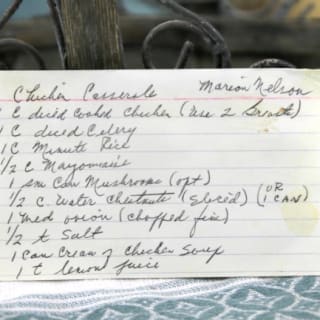 Chicken Casserole Marion Nelson
1 C diced cooked chicken (use 2 breasts)
1 C diced Celery
1 C Minute Rice
1/2 C Mayonnaise
1 sm Can Mushrooms (opt)
1/2 C Water Chestnuts (sliced) (OR 1 CAN)
1 med onion (chopped fine)
1/2 t Salt
1 can Cream of Chicken Soup
1 t lemon juice